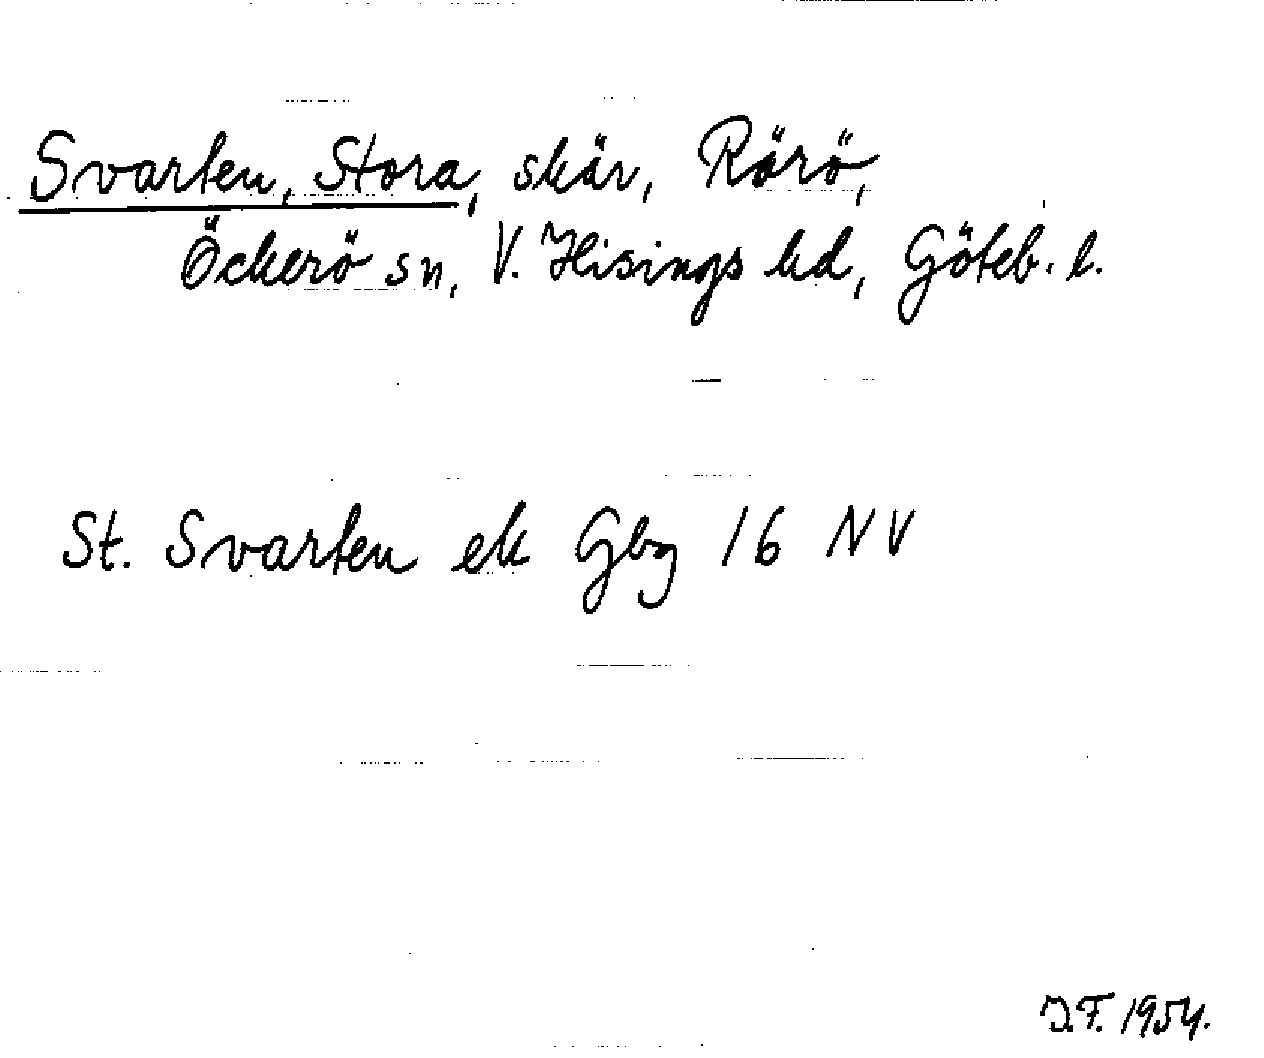 Svarten, Stora, skär, Rörö,
Öckerö sn, V. Hisings hd, Göteb. l.
St. Svarten ek Gbg 16 NV
J.F. 1954.